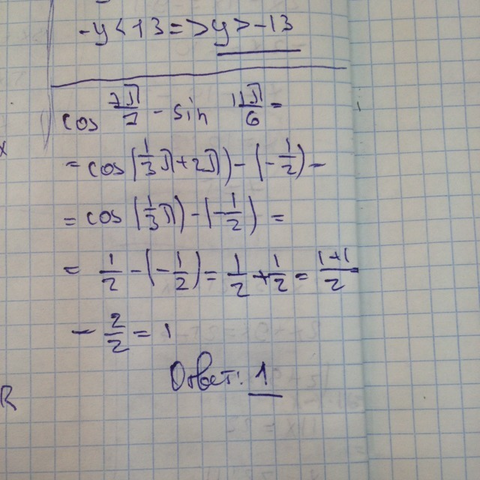 -y<+3=>y>-13
cos 7π/7 - sin 11π/6 =
= cos(1/3π+2π)-(-1/2) -
= cos(1/3π)-(-1/2) =
= 1/2-(-1/2)=1/2+1/2=1+1/2
- 2/2 = 1
Ответ: 1
R